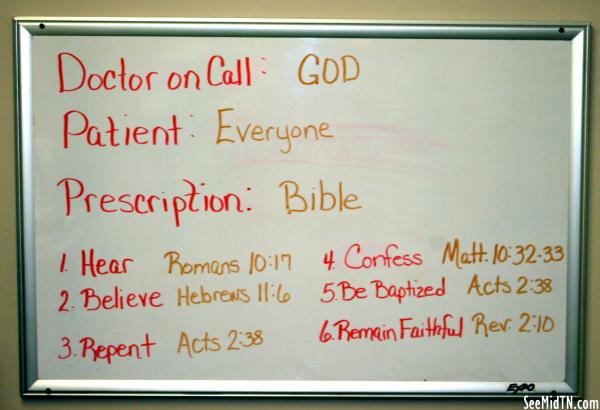 Doctor on Call: GOD
Patient: Everyone
Prescription: Bible
1. Hear Romans 10:17
2. Believe Hebrews 11:6
3. Repent Acts 2:38
4. Confess Matt. 10:32-33
5. Be Baptized Acts 2:38
6. Remain Faithful Rev. 2:10
EXPO
SeeMidTN.com